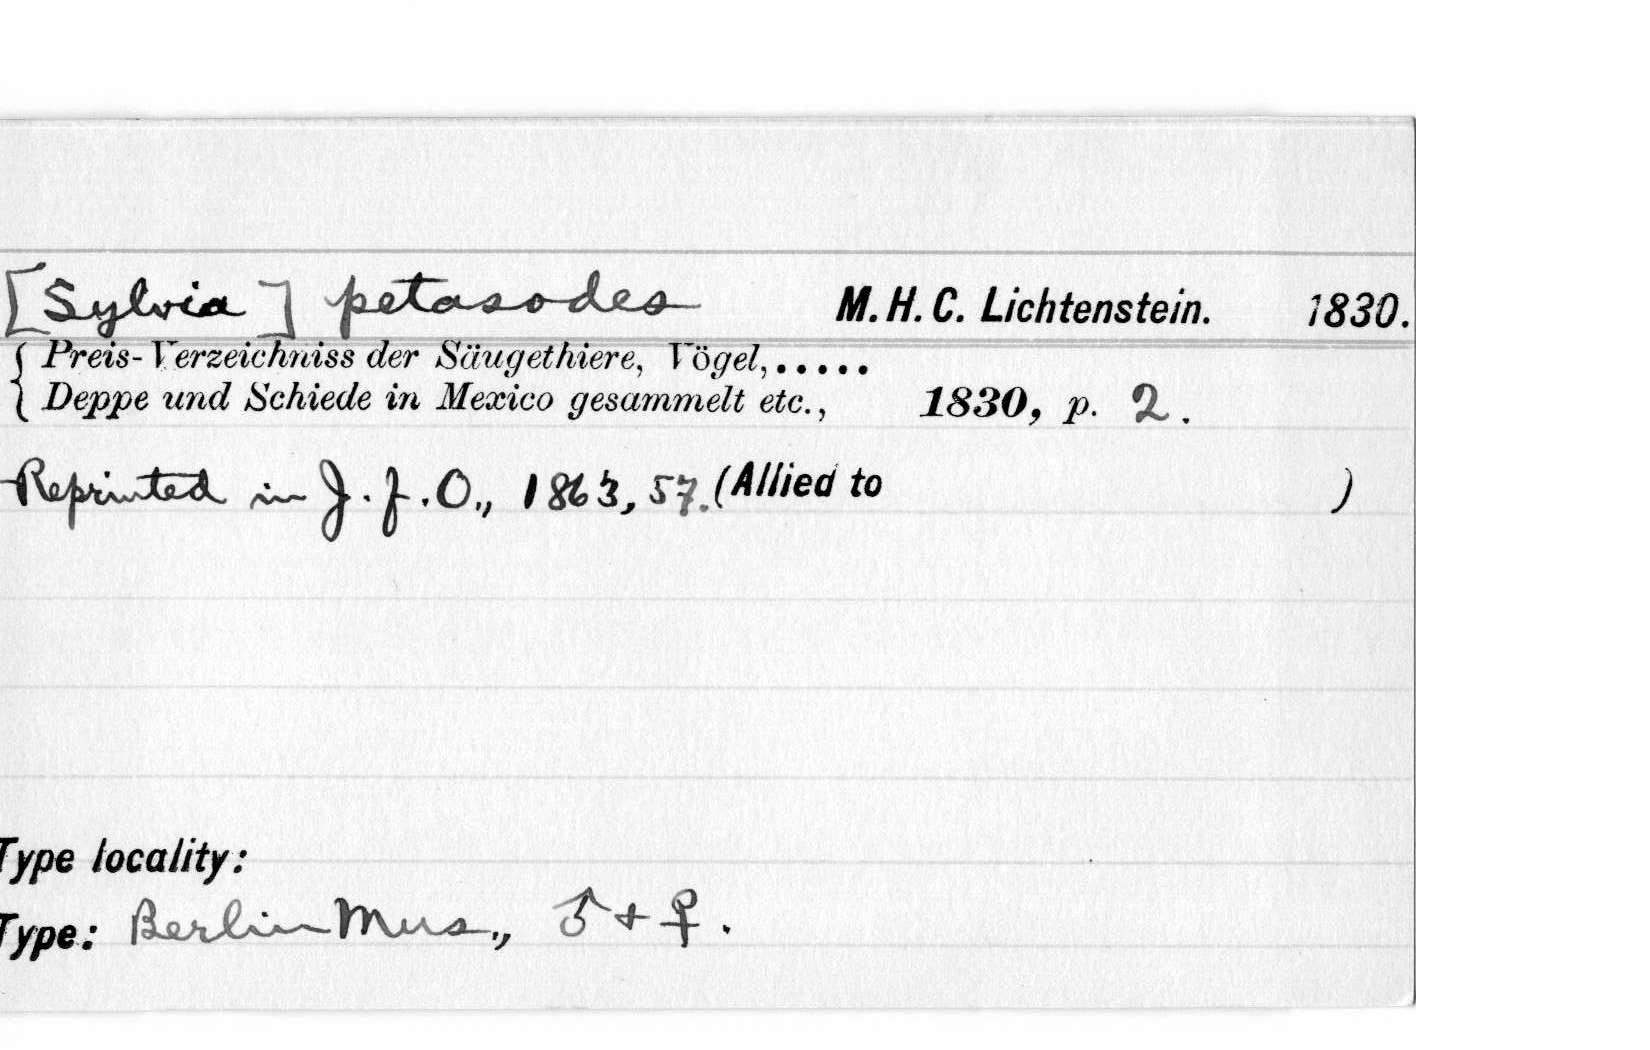 [Sylvia] petasodes M. H. C. Lichtenstein. 1830.
Preis-Verzeichniss der Säugethiere, Vögel,.....
Deppe und Schiede in Mexico gesammelt etc., 1830, p. 2.
Reprinted in J. f. O., 1863, 57. (Allied to )
Type locality:
Type: Berlin Mus., ♂ + ♀.